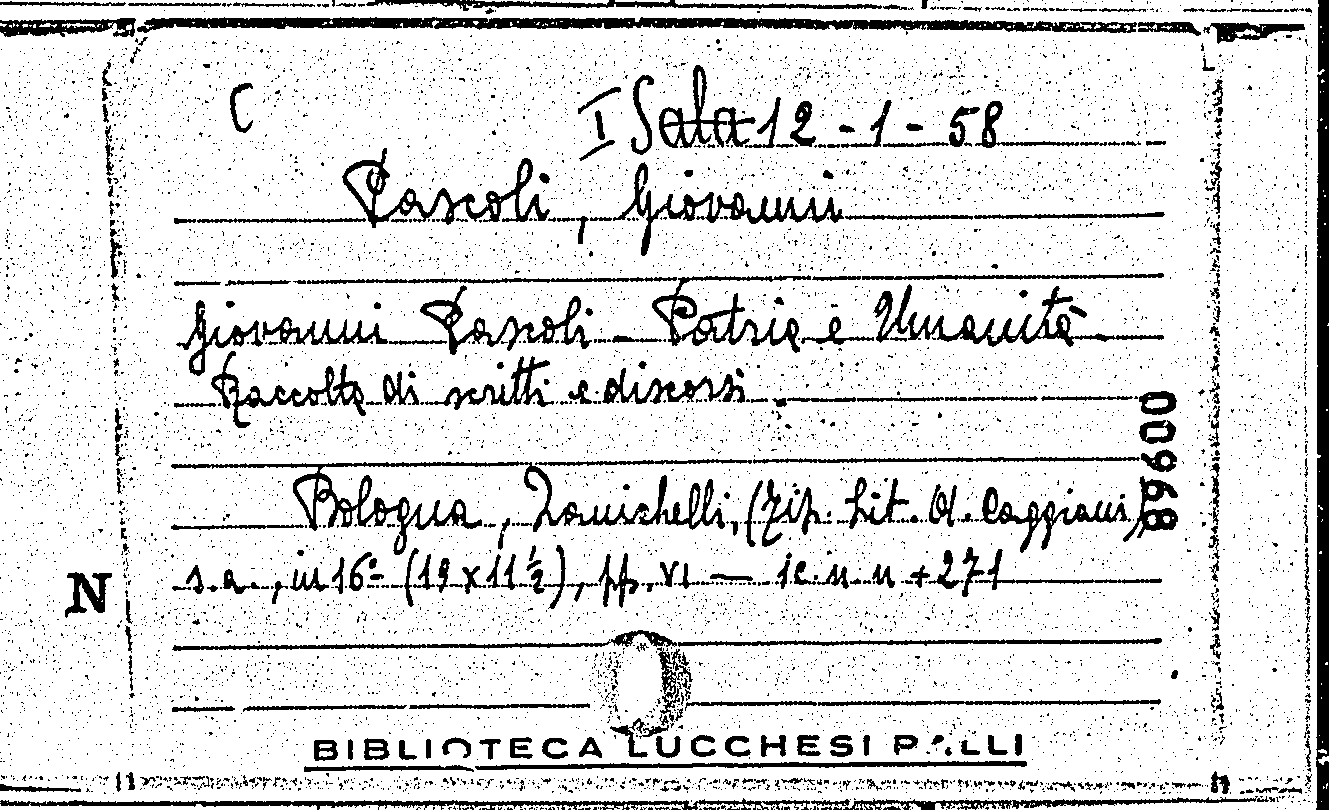 C I Sala 12-1-58
Pascoli, Giovanni
Giovanni Pascoli - Patria e Umanità
Raccolta di scritti e discorsi.
00998
Bologna, Zanichelli, (Tip. Lit. A. Caggiani)
s.a., in 16º (19 x 11 ½), pp. VI — 1c. n. n + 271
N
BIBLIOTECA LUCCHESI PALLI